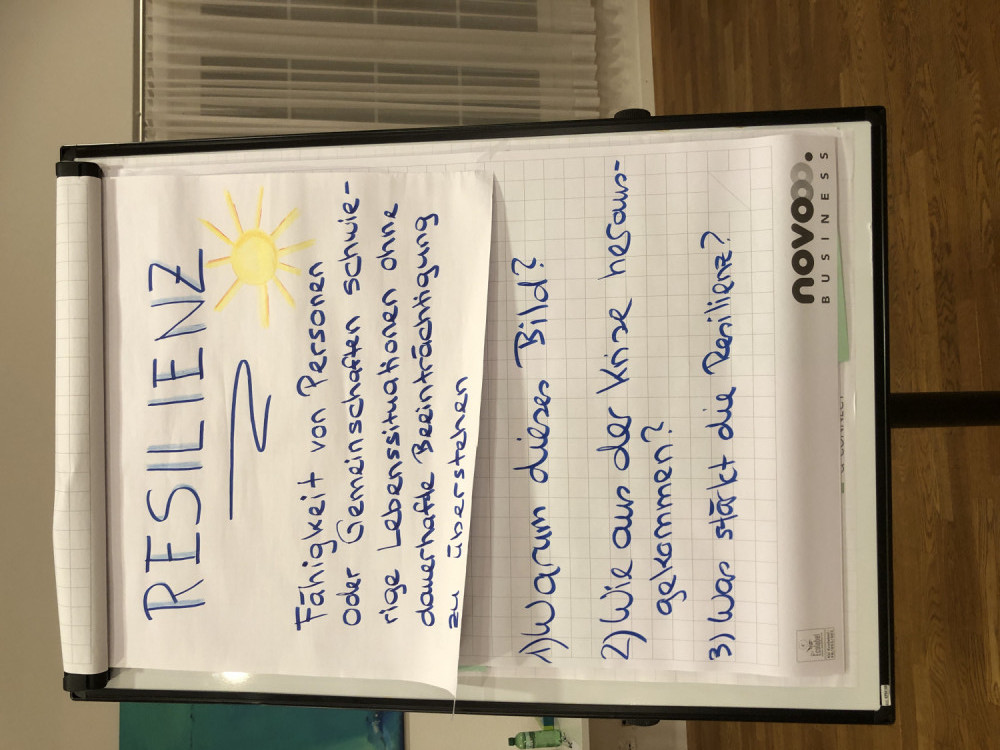 RESILIENZ
Fähigkeit von Personen
oder Gemeinschaften schwie-
rige Lebenssituationen ohne
dauerhafte Beeinträchtigung
zu überstehen
1) Warum dieses Bild?
2) Wie aus der Krise heraus-
gekommen?
3) Was stärkt die Resilienz?
novo
BUSINESS